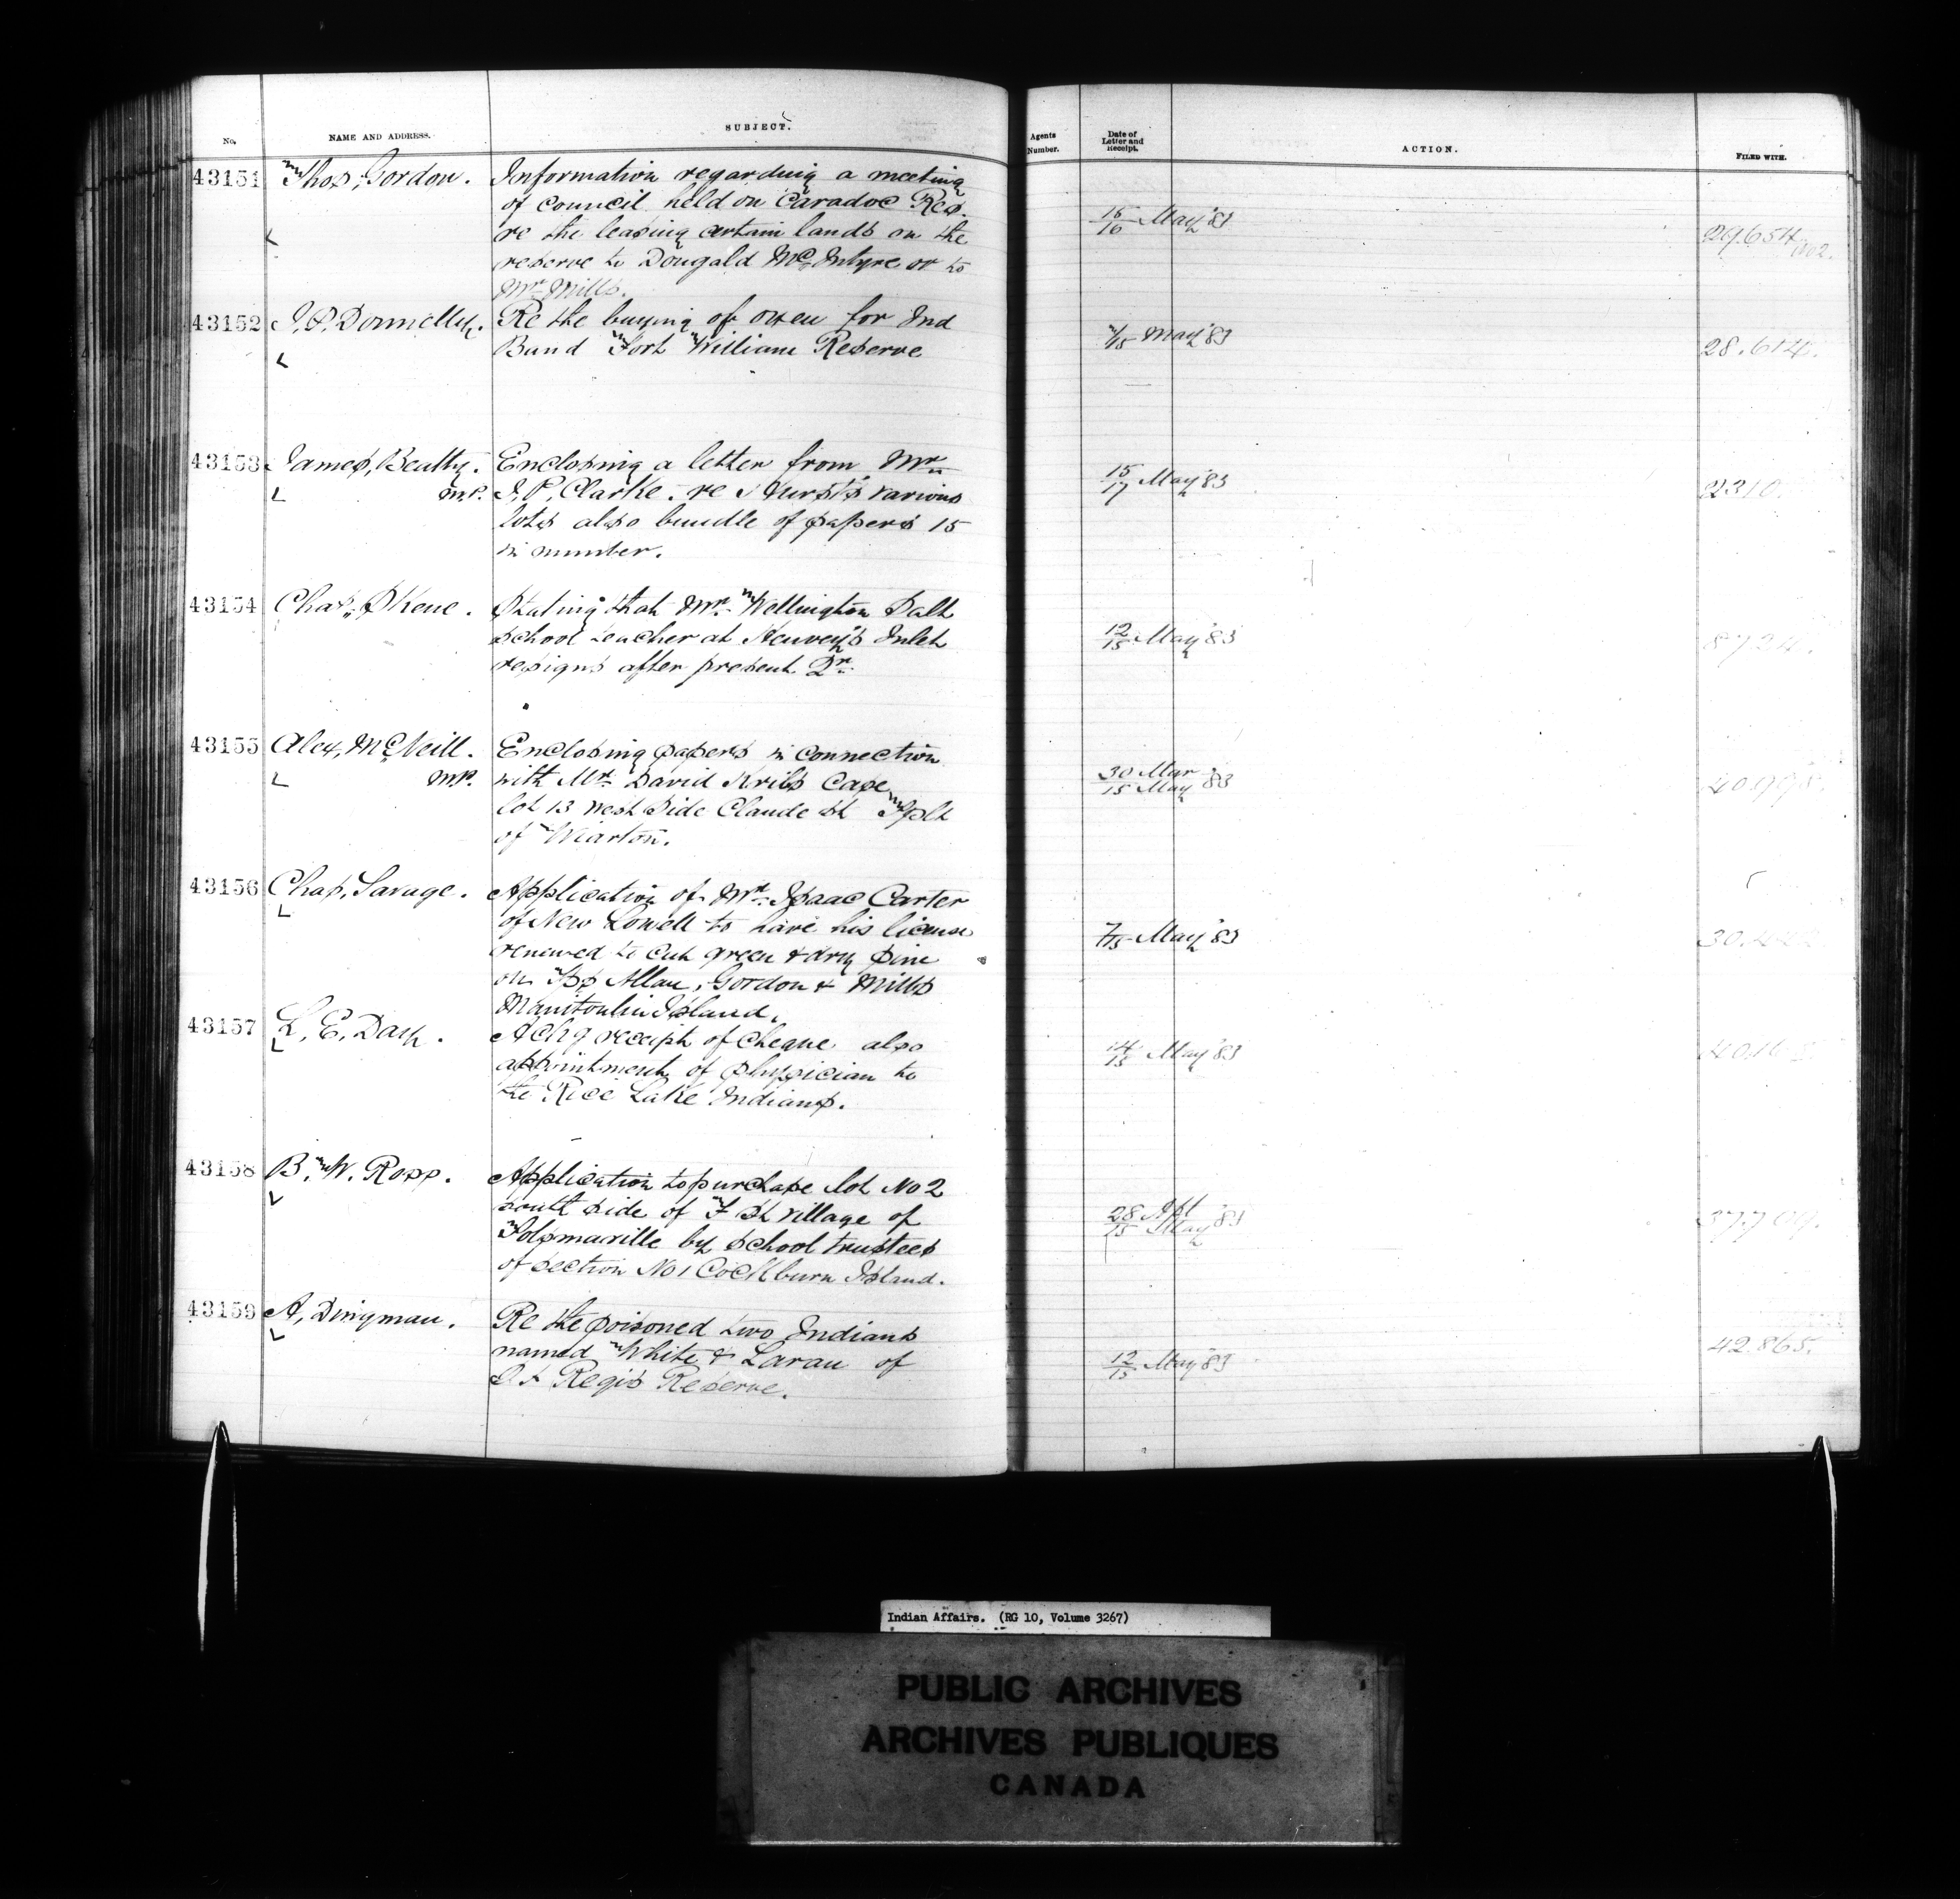 No. NAME AND ADDRESS. SUBJECT. Agents Number. Date of Letter and Receipt. ACTION. FILED WITH.
43151 Thos, Gordon. Information regarding a meeting
of council held on Caradoc Res.
re the leasing certain lands on the
reserve to Dougald McIntyre or to
Mr Mills.
15/16 May '83 29.654
43152 J. P. Donnelly. Re the buying of oxen for Ind
Band Fort William Reserve
/15 May '83 28.614.
43153 James, Beatty. Enclosing a letter from Mr
M.P. J. P. Clarke. re Hursts various
lots also bundle of papers 15
in number.
15/17 May '83 2310.
43154 Chas. Skene. Stating that Mr. Wellington Salt
school teacher at Henvey's Inlet
resigns after present Qr.
12/15 May '83 8724.
43155 Alex, McNeill. Enclosing papers in connection
M.P. with Mr. David Kribs Case
lot 13 west side Claude St Tplt
of Wiarton.
30 Mar/15 May '83
43156 Chas, Savage. Application of Mr. Isaac Carter
of New Lowell to have his license
renewed to cut green & dry pine
on Tps Allan, Gordon & Mills
Manitoulin Island.
7/15 May '83
43157 L, E, Day. Ackg receipt of cheque also
appointment of physician to
the Rice Lake Indians.
14/15 May '83
43158 B. W. Ross. Application to purchase lot No 2
south side of F St village of
Tolsmaville by school trustees
of section No 1 Cockburn Island.
28 Apl/15 May '83
43159 A, Dingman. Re the poisoned two Indians
named White & Laran of
St Regis Reserve.
12/15 May '83 42.865.
Indian Affairs. (RG 10, Volume 3267)
PUBLIC ARCHIVES
ARCHIVES PUBLIQUES
CANADA